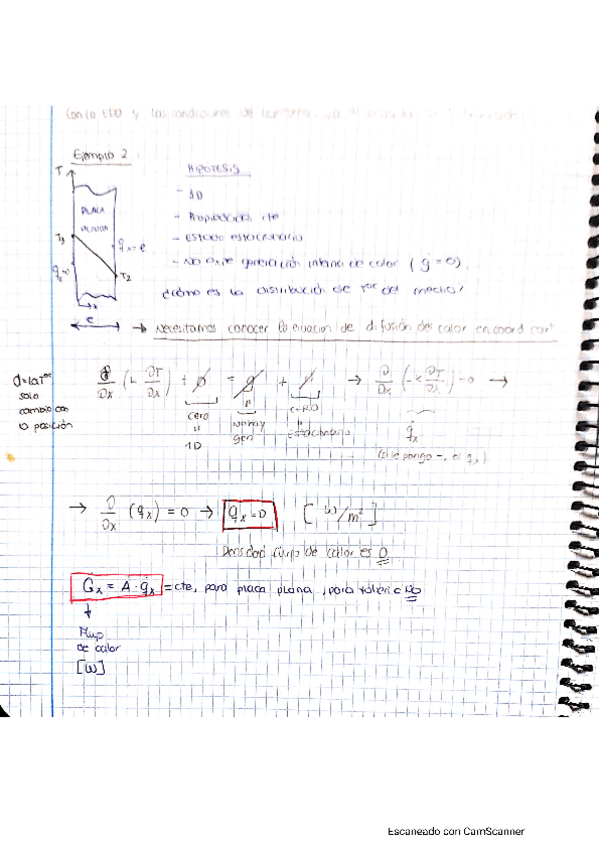 Con la EDO y las condiciones de contorno, ya
Ejemplo 2
HIPOTESIS
T
- 1D
PLACA
- Propiedades cte
- Estado estacionario
T1
q̇x = e
- NO existe generación interna de calor ( ġ = 0)
T2
¿cómo es la distribución de Tª del medio?
x
e
→ Necesitamos conocer la ecuación de difusión del calor en coord cart
d = la Tª
solo
cambia con
la posición
∂/∂x (k ∂T/∂x) + 0 = g + 0 → ∂/∂x (-k ∂T/∂x) = 0 →
cero
1D
no hay
gen
CERO
Estacionario
q̇x
(si le pongo -, es q̇x)
→ ∂/∂x (q̇x) = 0 → q̇x = 0 [W/m²]
Densidad flujo de calor es 0
Gx = A · q̇x = cte, para placa plana, para tubería NO
Flujo
de calor
[W]
Escaneado con CamScanner